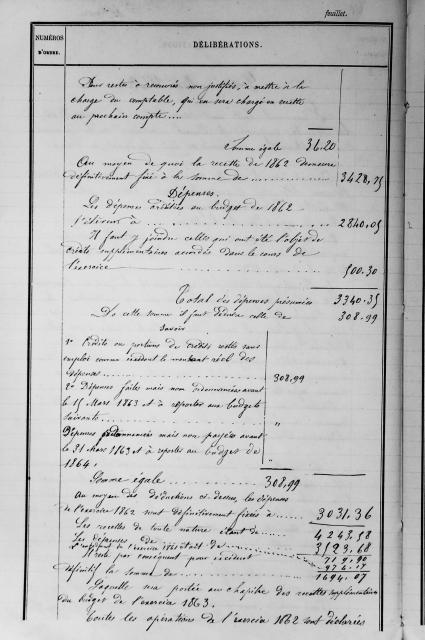 feuillet.
NUMÉROS
D'ORDRE.
DÉLIBÉRATIONS.
Pour restes à recouvrer non justifiés, à mettre à la
charge du comptable, qui en sera chargé en recette
au prochain compte....
Somme égale 36.20
Au moyen de quoi la recette de 1862 demeure
définitivement fixée à la somme de 3428,75
Dépenses.
Les dépenses créditées au budget de 1862
s'élèvent à 2840.05
Il faut y joindre celles qui ont été l'objet de
crédits supplémentaires accordés dans le cours de
l'exercice 500.30
Total des dépenses présumées 3340.35
De cette somme il faut déduire celle de 308.99
Savoir
1º Crédits ou portions de crédits restés sans
emploi comme excédant le montant réel des
dépenses 308,99
2º Dépenses faites mais non ordonnancées avant
le 15 Mars 1863 et à reporter aux budgets
suivants "
Dépenses ordonnancées mais non payées avant
le 31 Mars 1863 et à reporter au budget de
1864. "
Somme égale 308,99
Au moyen des déductions ci-dessus, les dépenses
de l'exercice 1862 sont définitivement fixées à 3031,36
Les recettes de toute nature étant de 4243.58
Les dépenses de
l'exercice
Il reste par conséquent pour excédent
définitif la somme de 1694.07
Laquelle sera portée au chapitre des recettes supplémentaires
du budget de l'exercice 1863.
Toutes les opérations de l'exercice 1862 sont déclarées